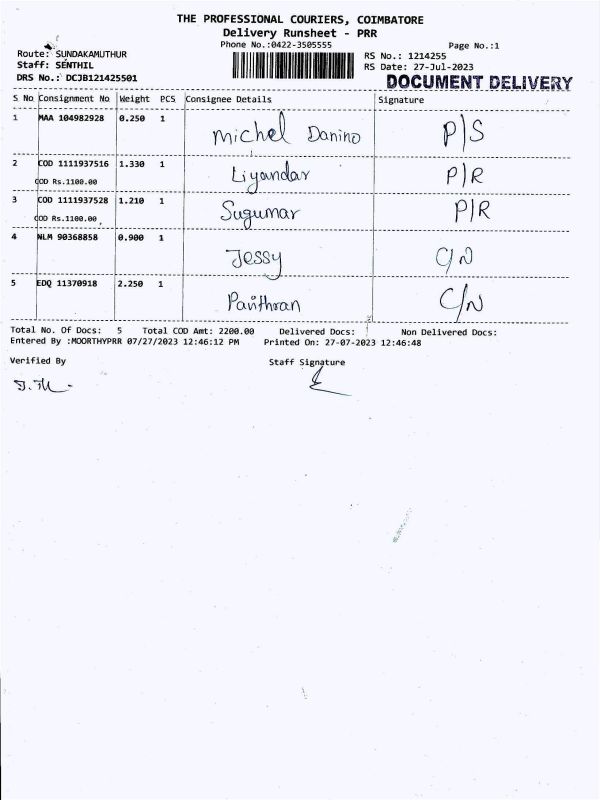 THE PROFESSIONAL COURIERS, COIMBATORE
Delivery Runsheet - PRR
Phone No.:0422-3505555 Page No.:1
Route: SUNDAKAMUTHUR
Staff: SENTHIL
DRS No.: DCJB121425501
RS No.: 1214255
RS Date: 27-Jul-2023
DOCUMENT DELIVERY
S No Consignment No Weight PCS Consignee Details Signature
1 MAA 104982928 0.250 1 Michel Danino P/S
2 COD 1111937516 1.330 1 Liyandar P/R
COD Rs.1100.00
3 COD 1111937528 1.210 1 Sugumar P/R
COD Rs.1100.00
4 NLM 90368858 0.900 1 Jessy C/N
5 EDQ 11370918 2.250 1 Pavithran C/N
Total No. Of Docs: 5 Total COD Amt: 2200.00 Delivered Docs: Non Delivered Docs:
Entered By :MOORTHYPRR 07/27/2023 12:46:12 PM Printed On: 27-07-2023 12:46:48
Verified By Staff Signature